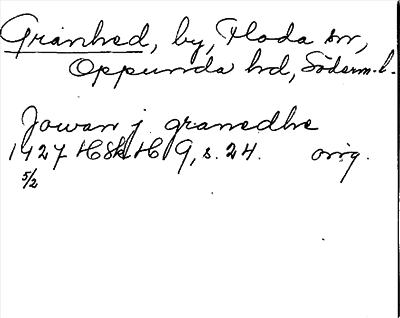 Granhed, by, Floda sn,
Oppunda hd, Söderm.l.
Jowan j granedhe
1427 HSH 19, s. 24. orig.
5/2